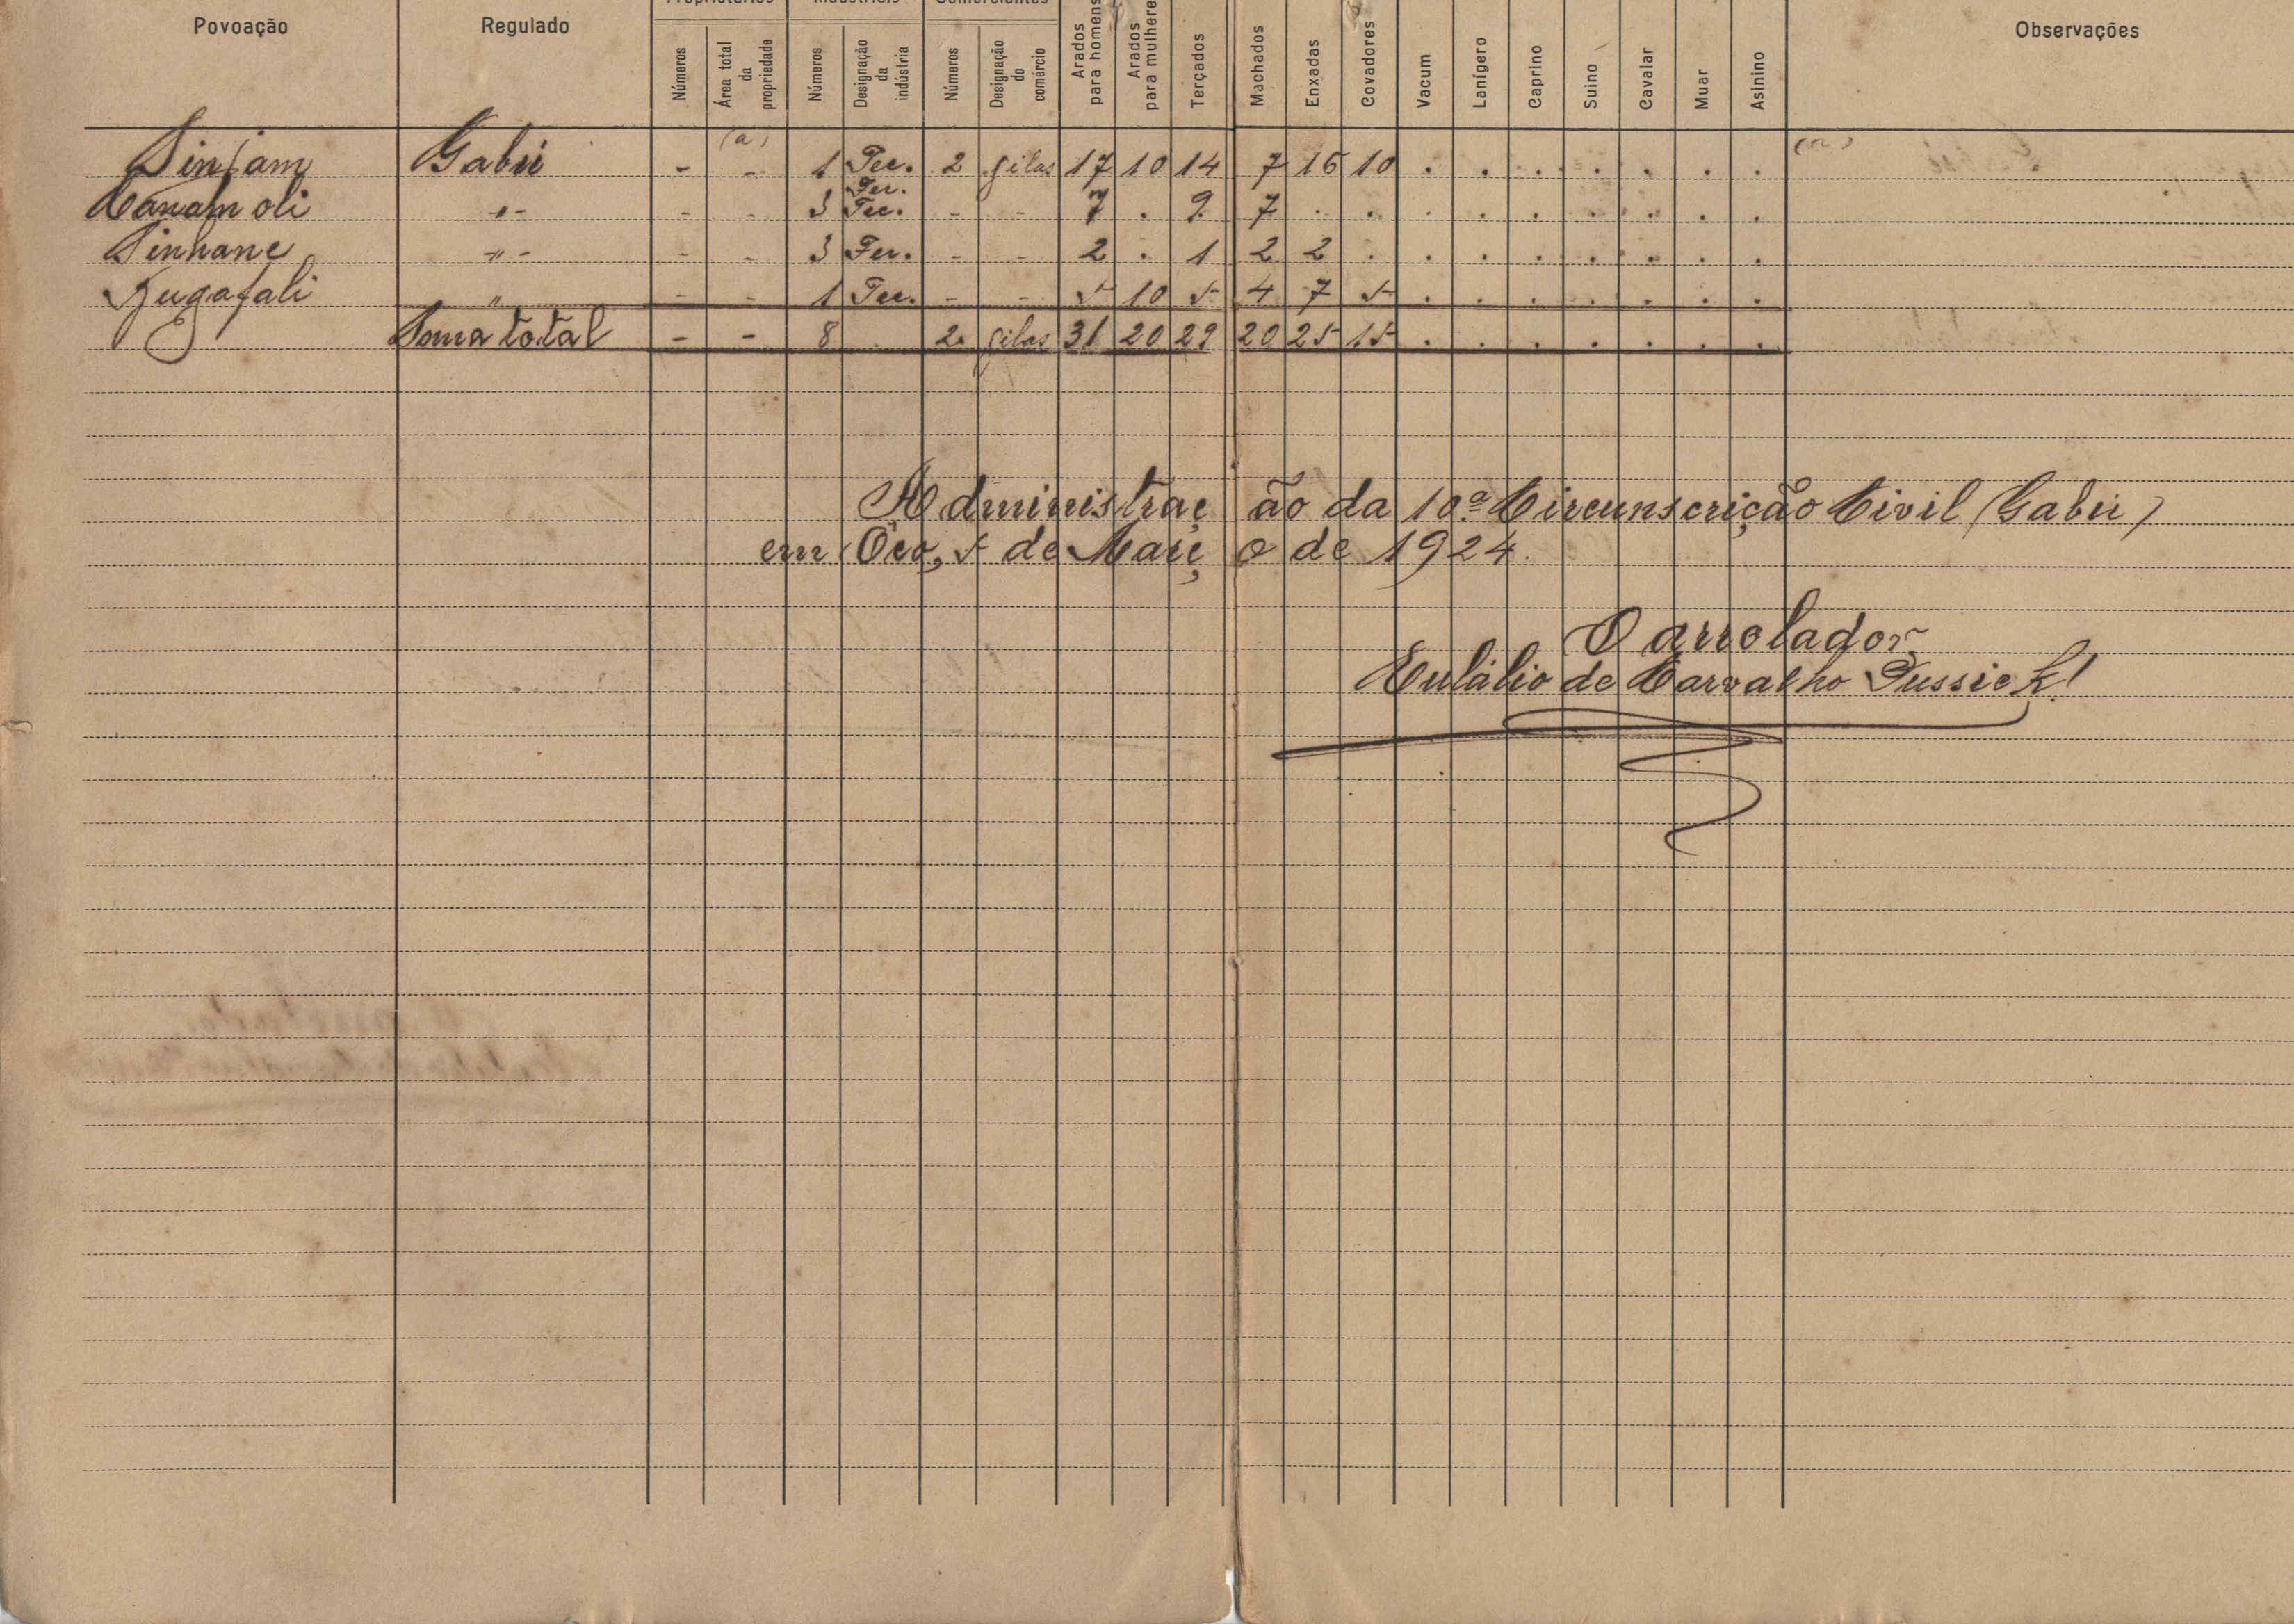 Povoação Regulado Números Área total da propriedade Números Designação da indústria Números Designação do comércio Arados para homens Arados para mulheres Terçados Machados Enxadas Covadores Vacum Lanígero Caprino Suino Cavalar Muar Asinino Observações
(a) (a)
Sinjam Gabú - - 1 Tec. 2 gilas 17 10 14 7 16 10 . . . . . . .
Fer.
Canam oli -"- - - 3 Tec. - - 7 . 9 7 . . . . . . . . .
Sinhane -"- - - 3 Fer. - - 2 . 1 2 2 . . . . . . . .
" - - 1 Tec. - - 5 10 5 4 7 5 . . . . . . .
Soma total - - 8 . 2 gilas 31 20 29 20 25 15 . . . . . . .
Administração da 10ª Circunscrição Civil (Gabú)
em Oco, 5 de Março de 1924.
O arrolador
Eulálio de Carvalho